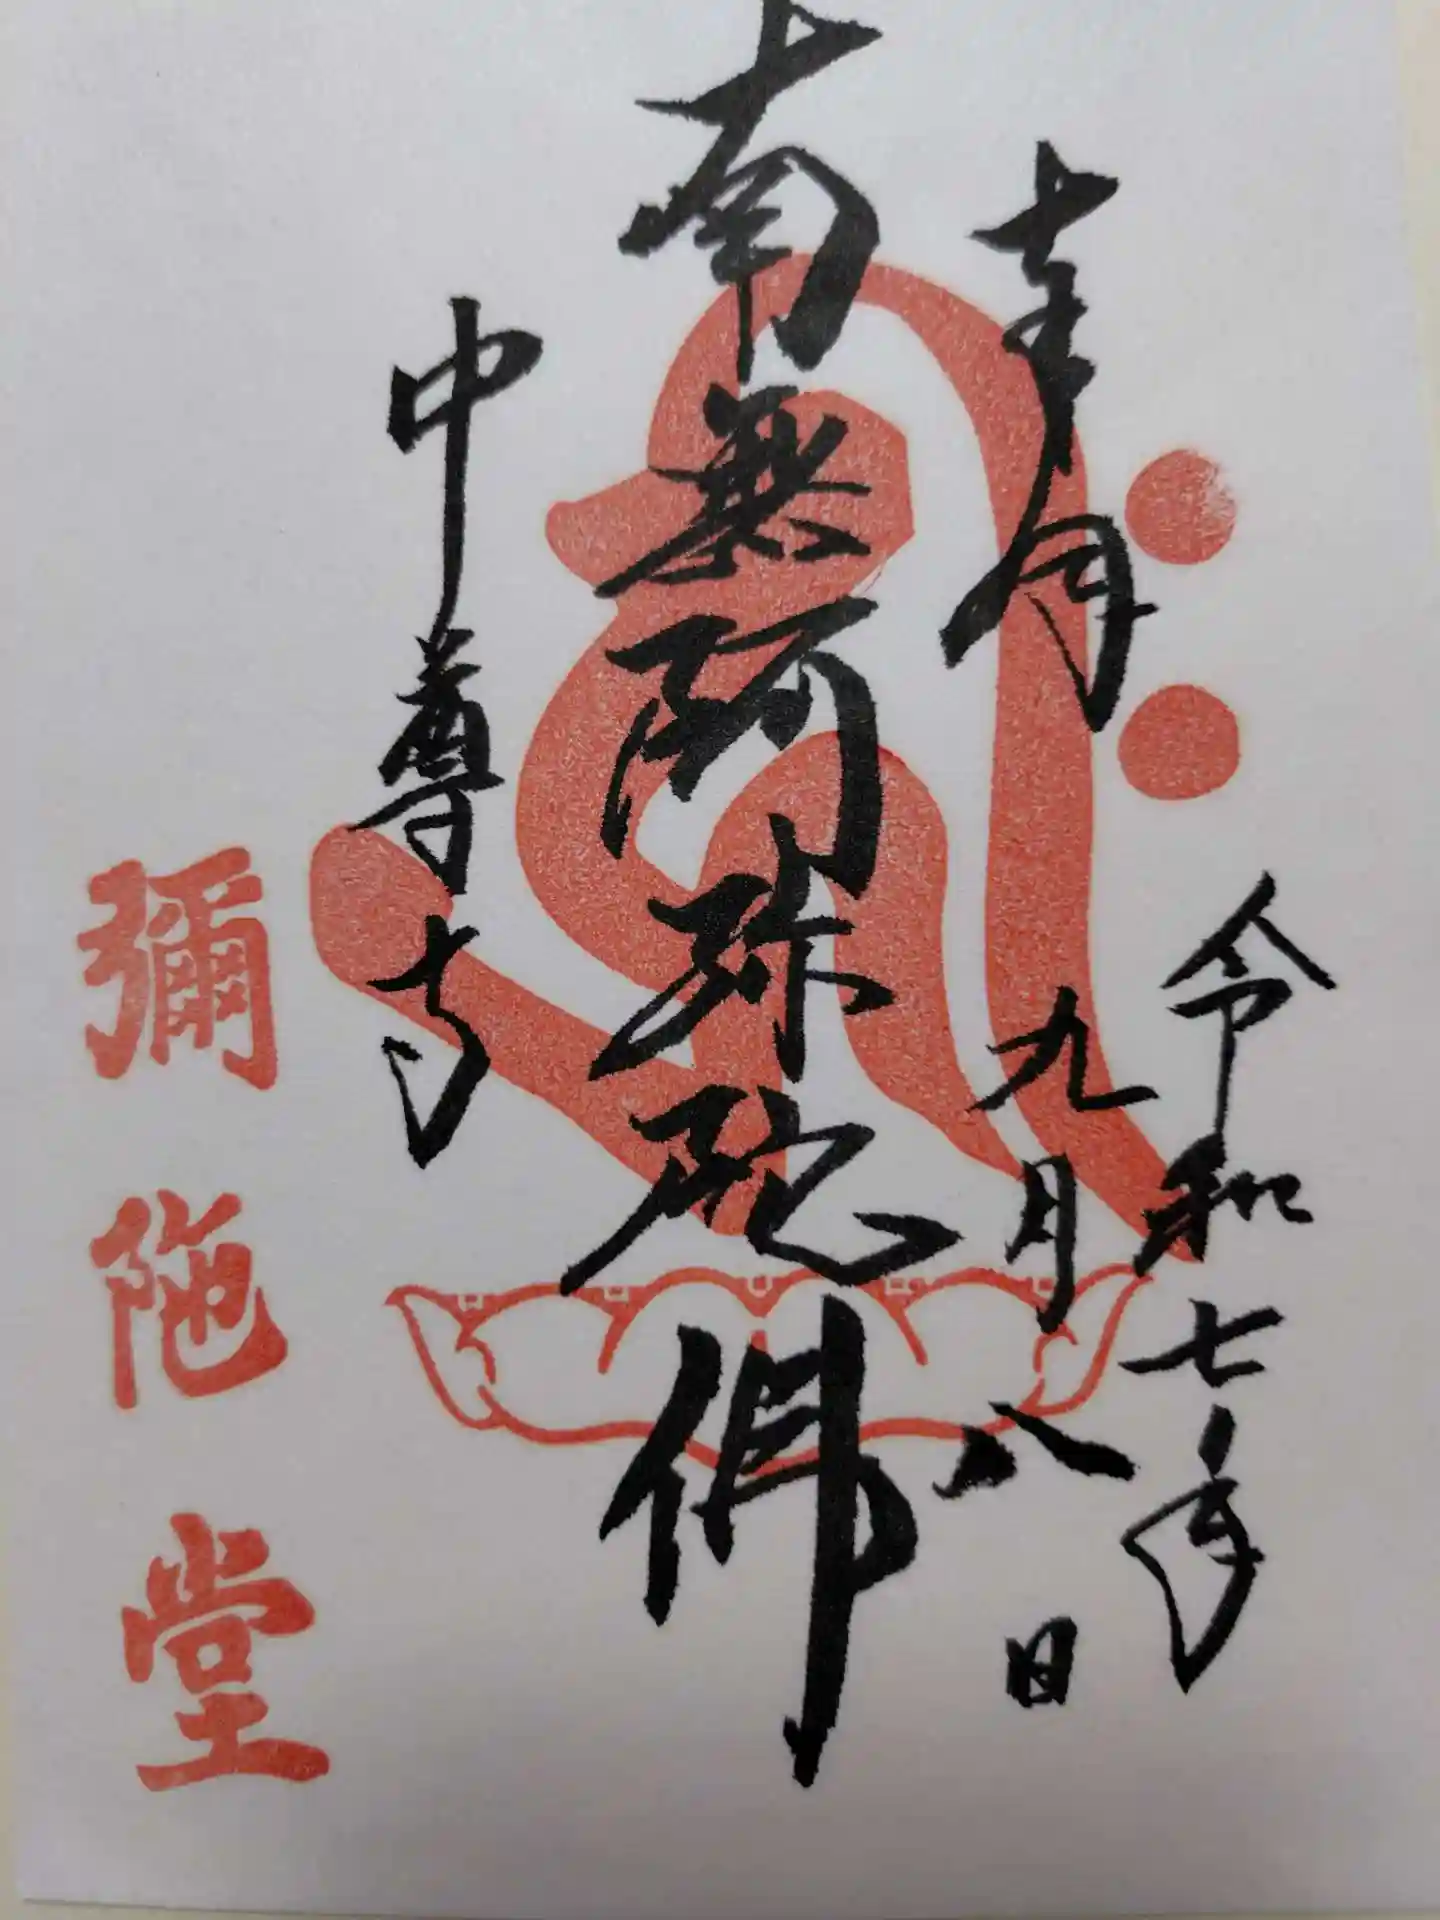 奉拝
令和七年
九月八日
南無阿弥陀佛
中尊寺
彌陁堂